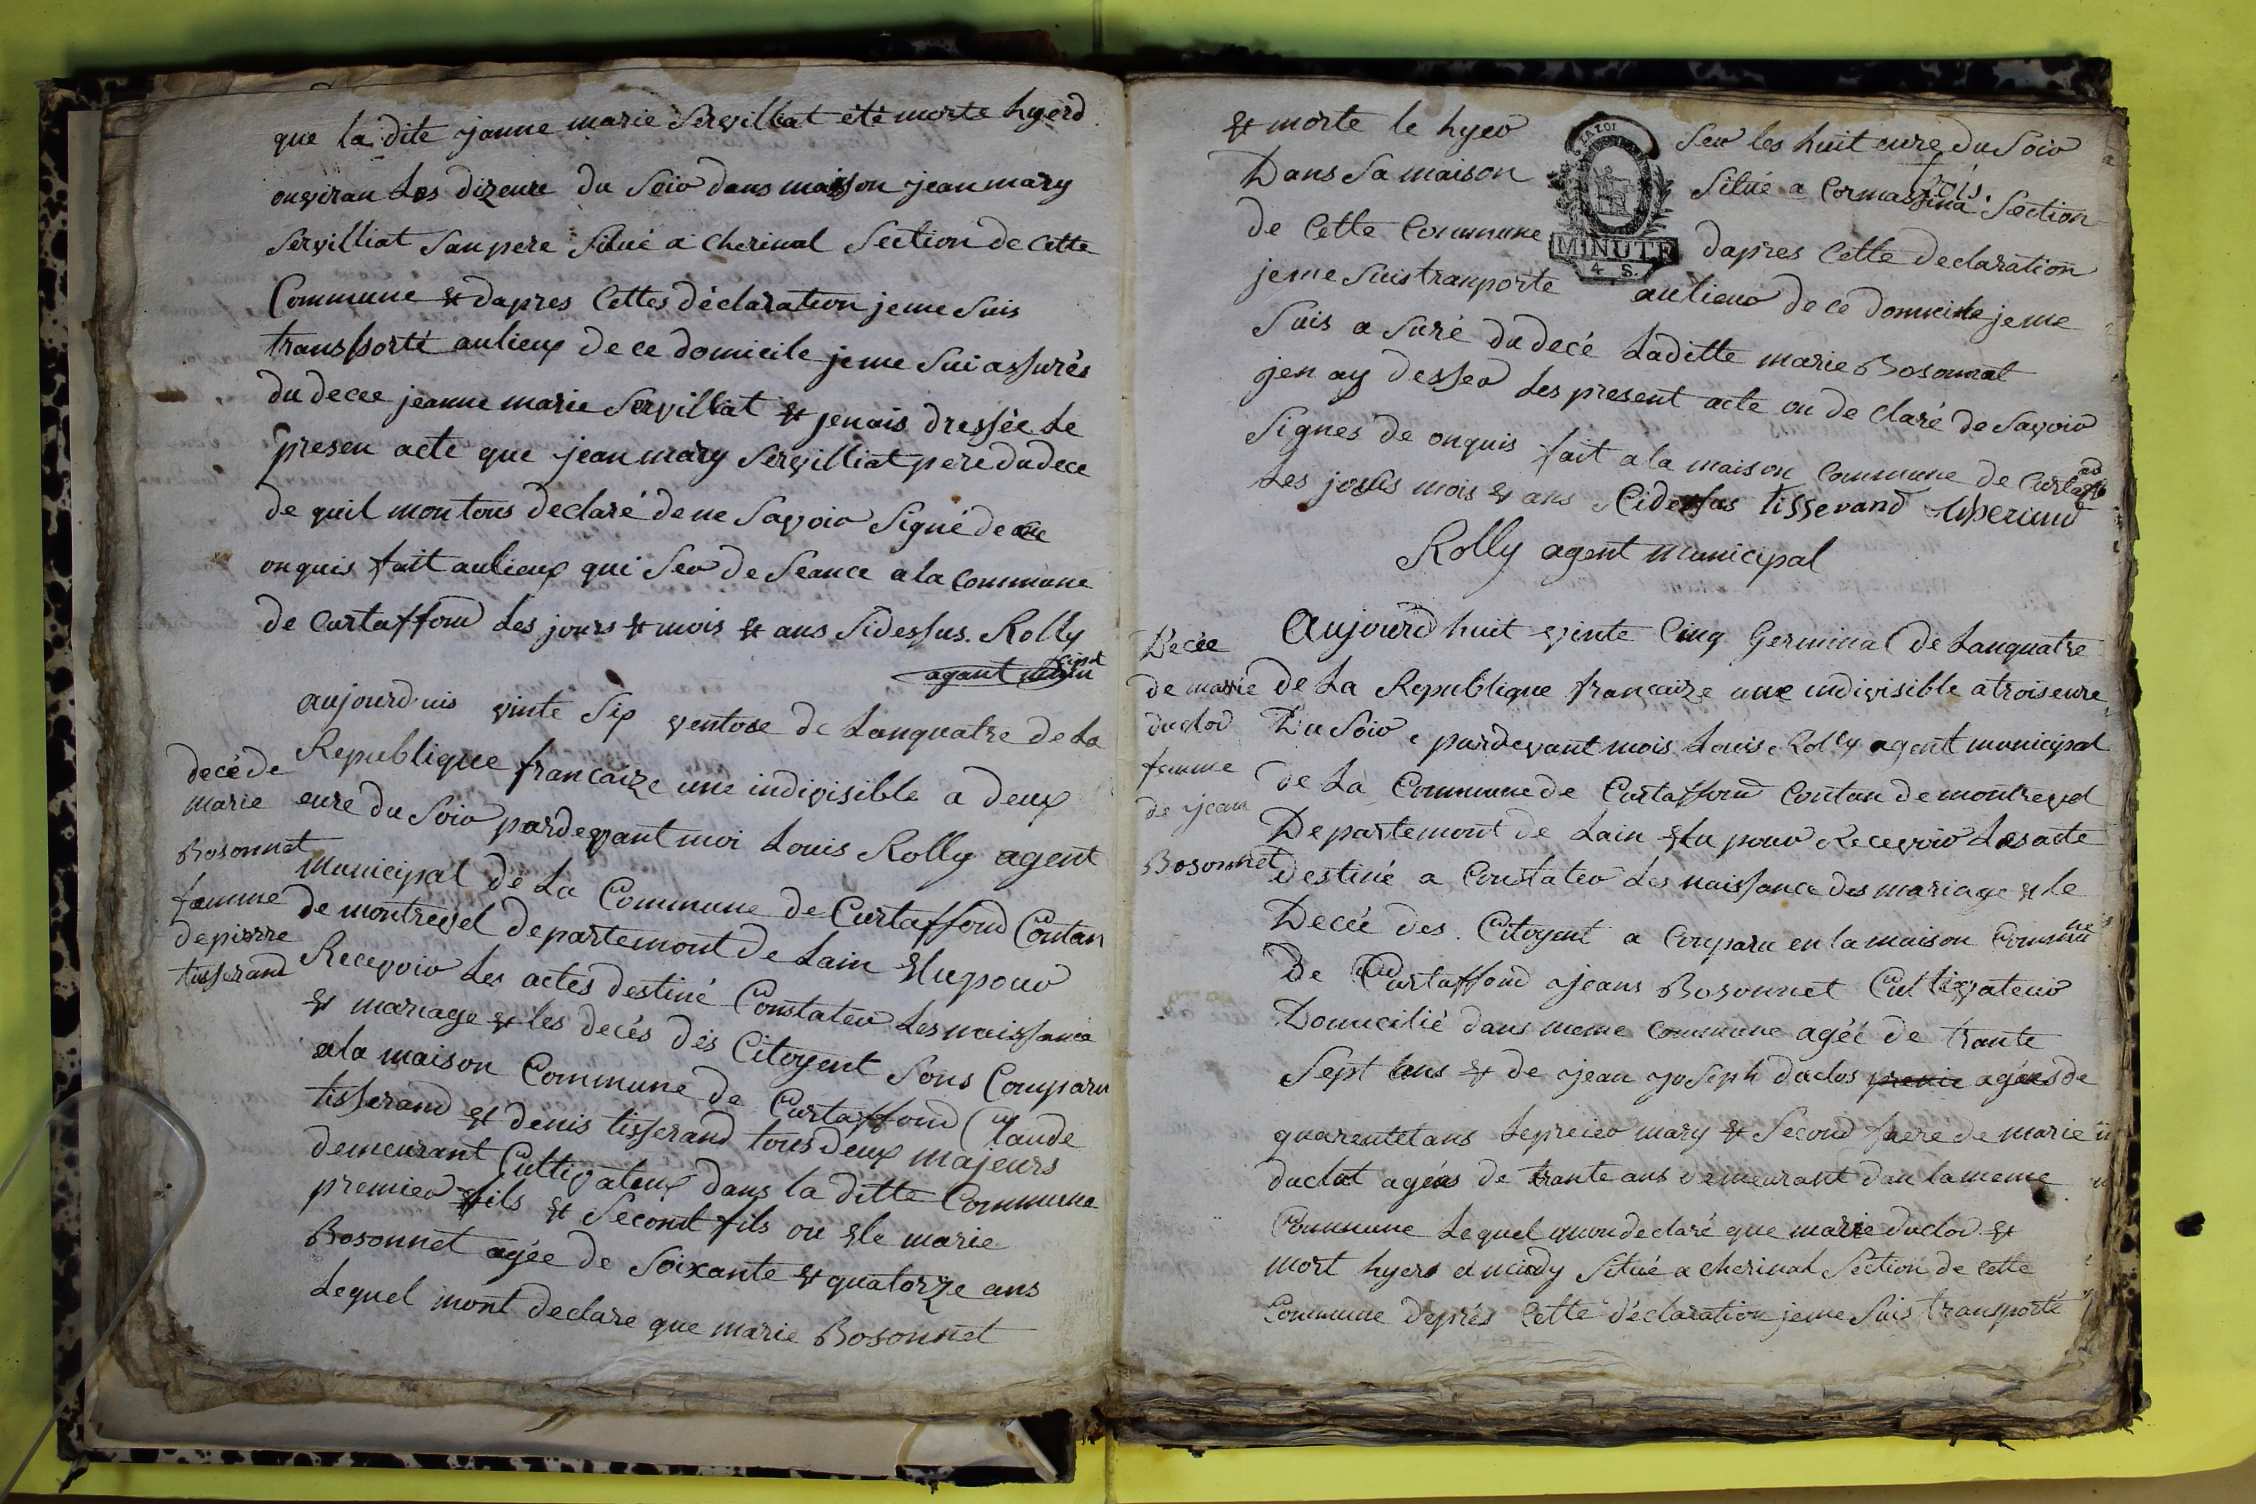 que la dite janne marie Servilliat été morte hyerd
onviran Les dizeure du Soir dans maison jean mary
Servilliat Sanpere Situé a cherinal Section de Cette
Commune & dapres Cettes déclaration jeme Suis
transporté aulieux de ce domicile jeme Sui assurés
du decee jeanne marie Servilliat & jenais dressée Le
presen acte que jean mary Servilliat pere du dece
de quil mon tous declaré de ne Savoir Signé de ce
onquis fait aulieux qui Ser de Seance a la Commune
de Curtaffond Les jours & mois & ans Sidessus. Rolly
agant municipal
aujourd'uis vinte Six ventose de Lanquatre de La
Republique francaize une indivisible a deux
eure du Soir pardevant moi Louis Rolly agent
Municipal de La Commune de Curtaffond Contan
de montrevel departemont de Lain Elu pour
Recevoir Les actes destiné Constater Les naissance
& mariage & les decés des Citoyent Sons Comparu
a la maison Commune de Curtaffond Claude
tisserand & denis tisserand tous deux majeurs
demeurant Cultivateur dans la ditte Commune
premier fils & Second fils on de marie
Bosonnet agée de Soixante & quatorze ans
Lequel mont declare que marie Bosonnet
decé de
marie
Bosonnet
famme
de pierre
tisserand
& morte le hyer Ser les huit eure du Soir
Dans Sa maison Situé a Cormassina Section
de Cette Commune dapres Cette declaration
jeme Suis tranporte aulieur de ce domicile jeme
Suis a Suré du decé Laditte marie Bosonnat
jen ay desser Les present acte on de claré de Savoir
Signés de onquis fait a la maison Commune de Curtaffond
Les jours mois & ans Cidessus tisserand
Rolly agent municipal
Decée
de marie
duclos
femme
de jean
Bosonnet
Aujourdhuit vinte Cinq Germinal de Lanquatre
de La Republique francaize une indivisible a trois eure
Du Soir pardevant mois Louis Rolly agent municipal
de La Commune de Curtaffond Contan de montrevel
Departemont de Lain Elu pour Recevoir Les acte
destiné a Constater Les naissance des mariage & le
Decée des Citoyent a Conparu en la maison Commune
De Curtaffond jeans Bosonnet Cultivateur
Domicilié dans meme Commune agéé de trante
Sept ans & de jean joseph duclos agées de
quarentetans Lepreier mary & Second frere de marie
duclot agées de trante ans demeurant dan la meme
Commune Lequel mon declaré que marie duclos &
mort hyers a midy Situé a cherinal Section de Cette
Commune daprés Cette déclaration jeme Suis transporté
MINUTE
4 S.